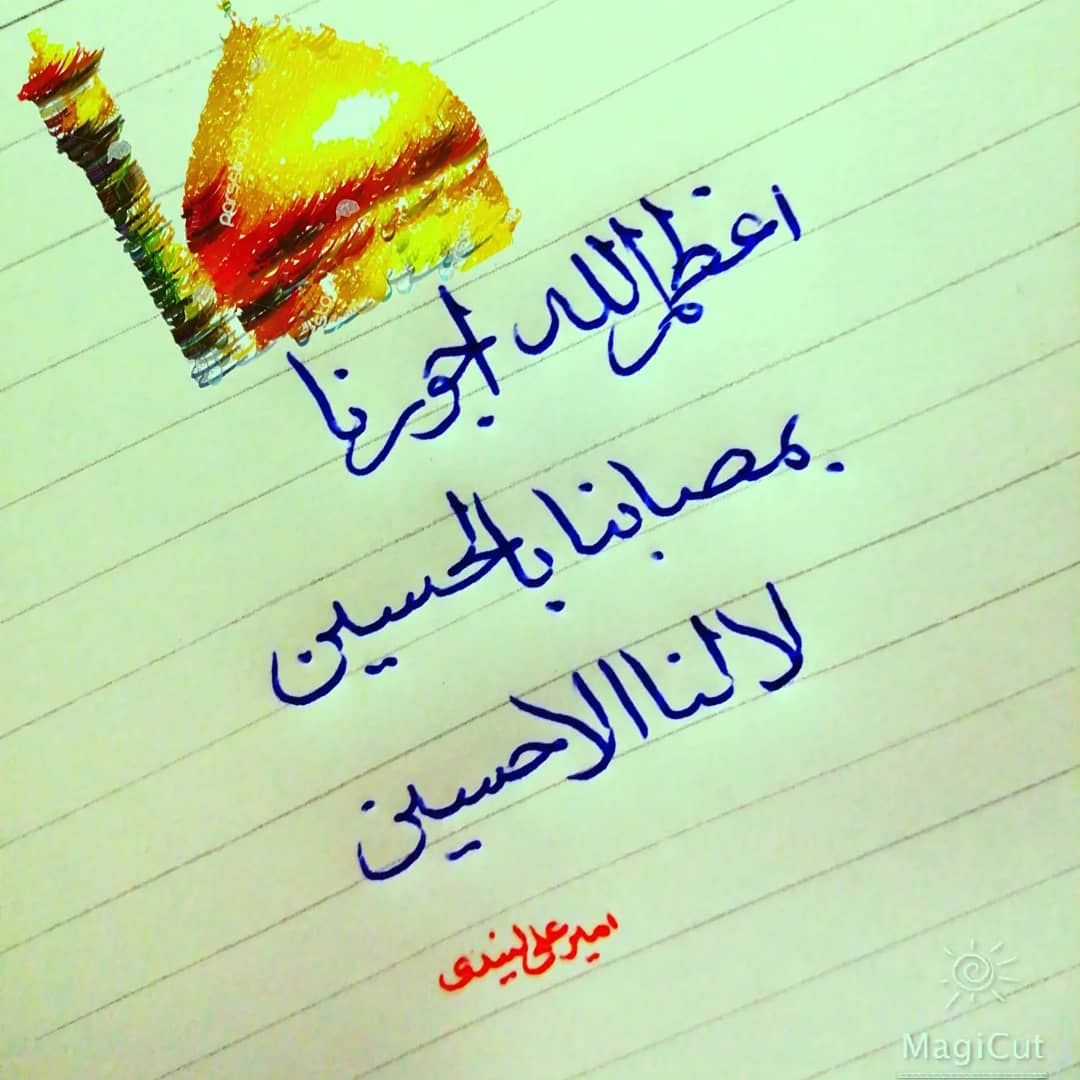 اعظم الله اجورنا
بمصابنا بالحسین
لا لنا الا حسین
امیر علی لیندی
MagiCut